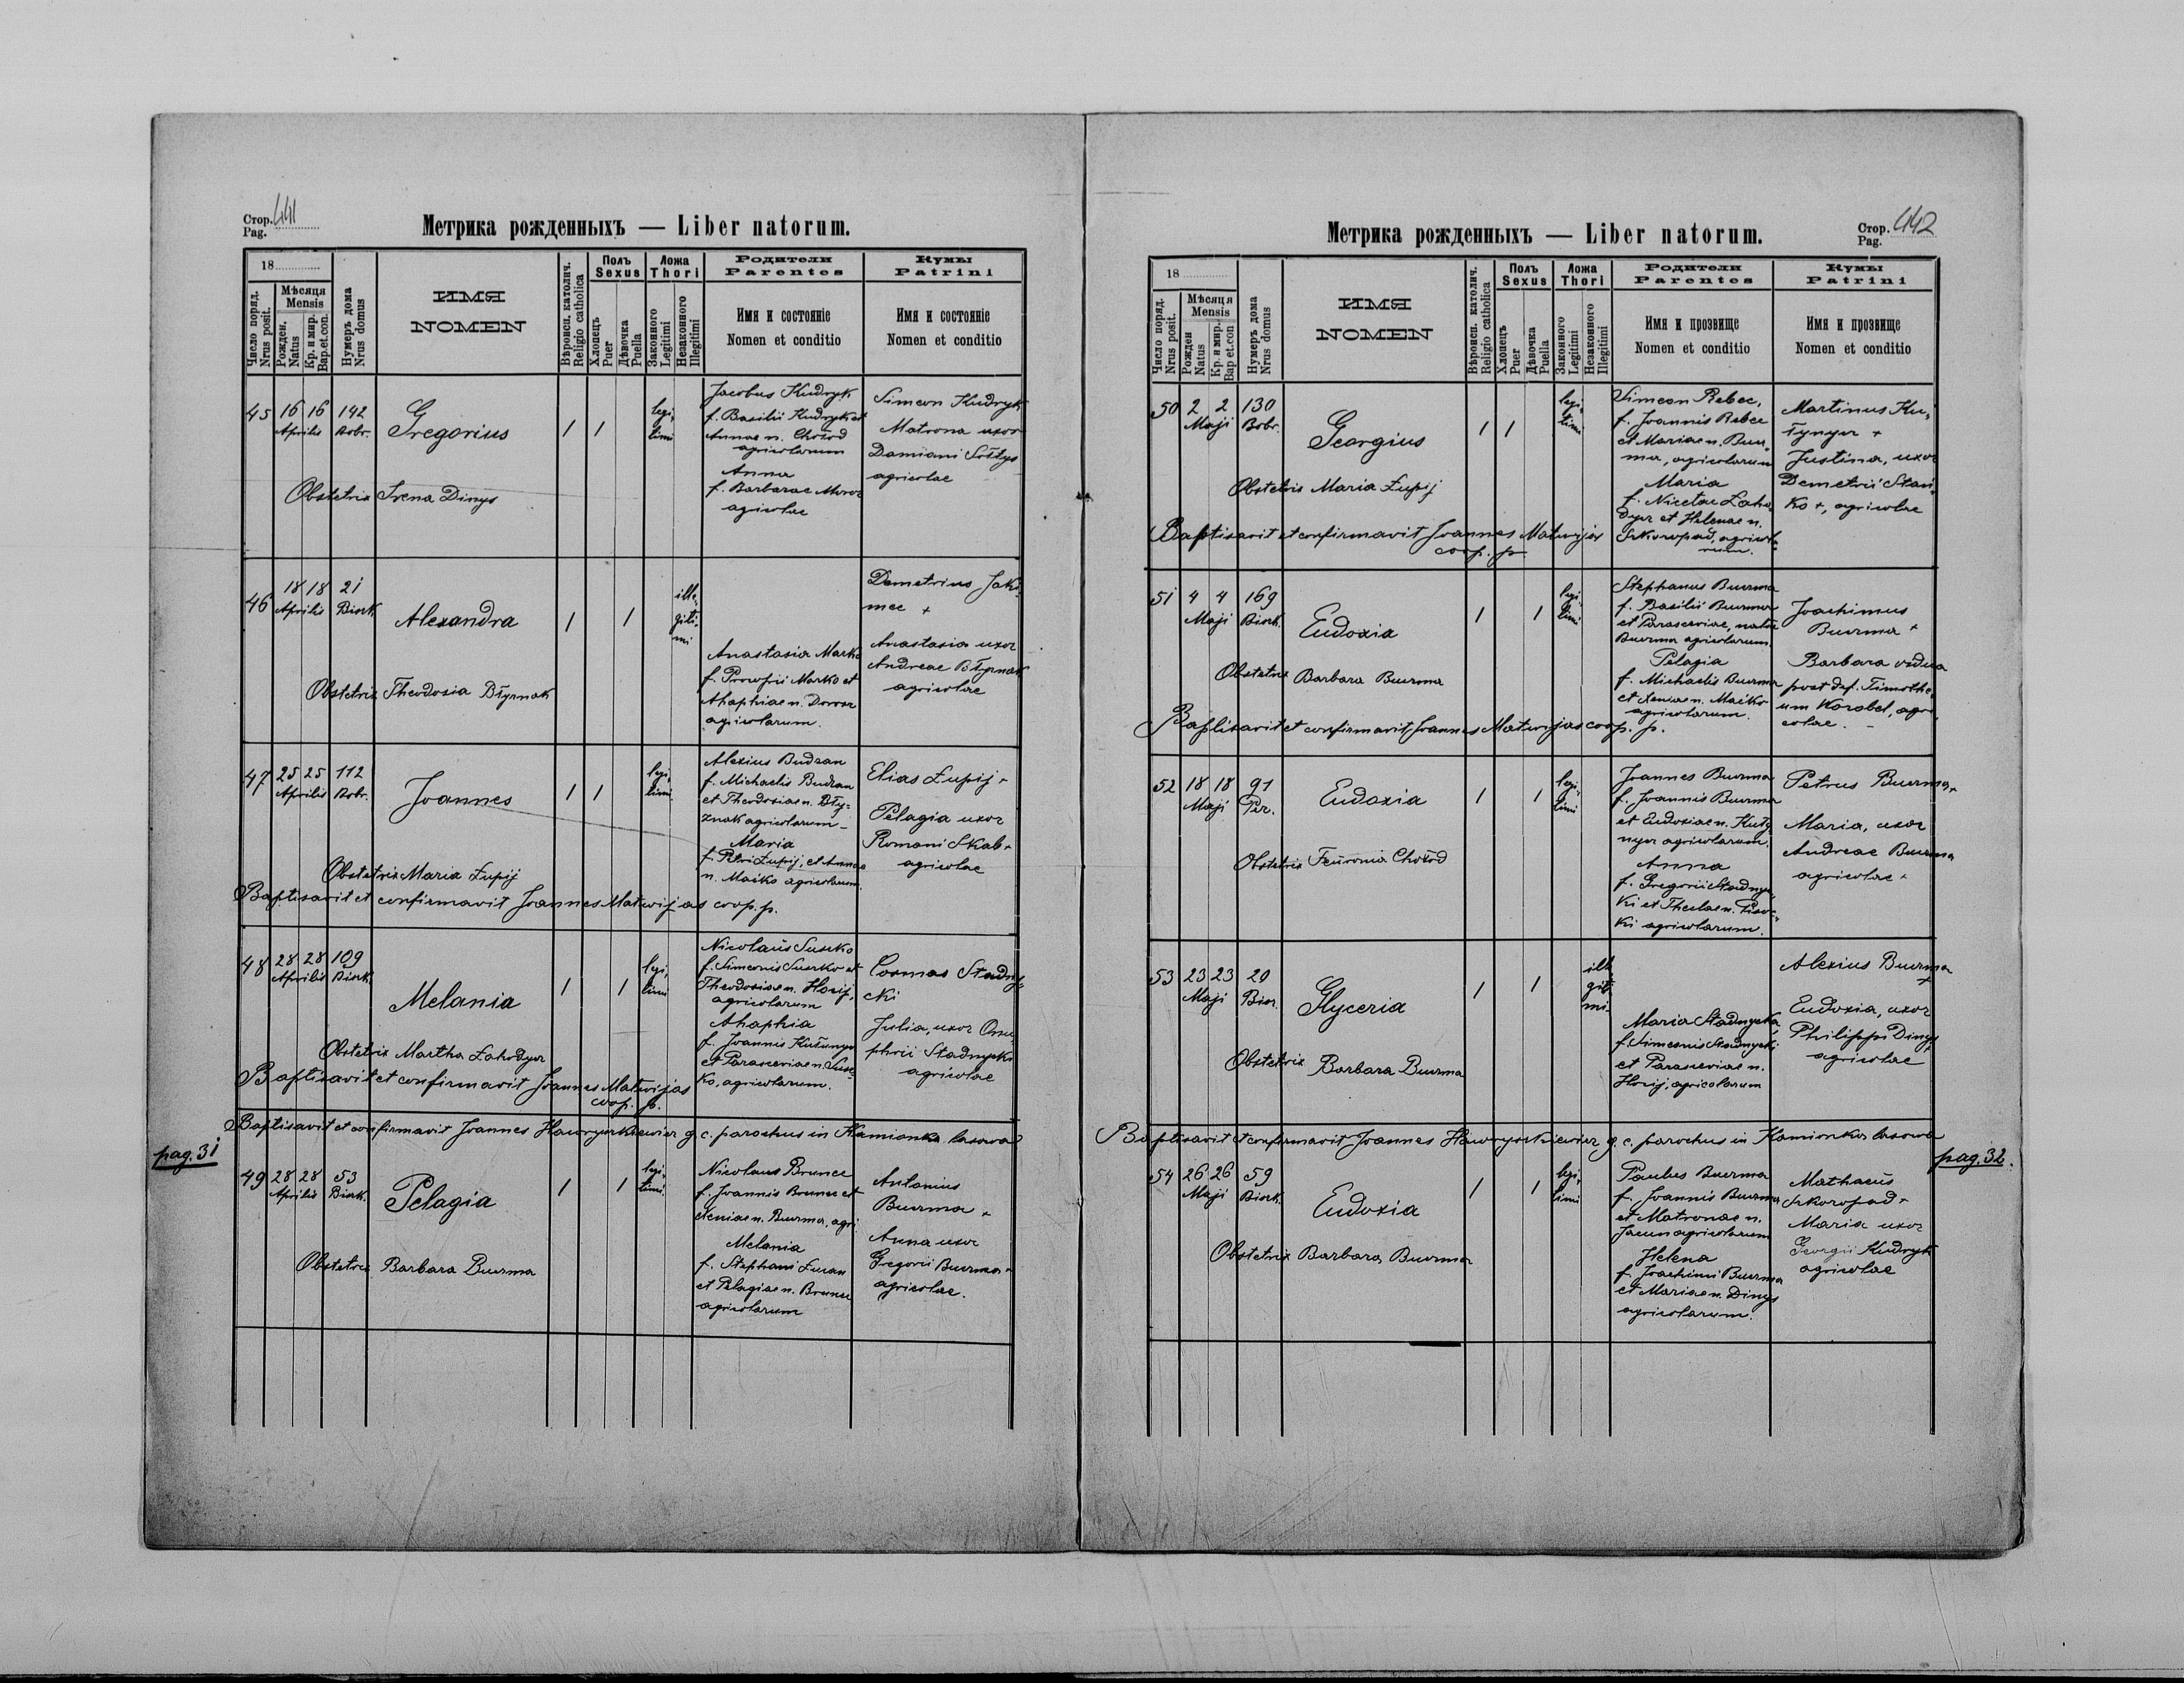 Стор. 441
Pag.
Метрика рожденныхъ — Liber natorum.
18
Число поряд.
Nrus posit.
Мѣсяця
Mensis
Рожден.
Natus
Кр. и мир.
Bap.et.con.
Нумеръ дома
Nrus domus
ИМЯ
NOMEN
Вѣроисп. католич.
Religio catholica
Полъ
Sexus
Хлопецъ
Puer
Дѣвочка
Puella
Ложа
Thori
Законного
Legitimi
Незаконного
Illegitimi
Родители
Parentes
Имя и состояніе
Nomen et conditio
Кумы
Patrini
Имя и состояніе
Nomen et conditio
45 16 16 142
Aprilis Bobr.
Gregorius
1 1
legi-
timi
Jacobus Kudryk
f. Basilii Kudryk et
Annae n. Chołod
agricolarum
Anna
f. Barbarae Moroz
agricolae
Simeon Kudryk
Matrona uxor
Damiani Sołtys
agricolae
Obstetrix Irena Dinys
46 18 18 21
Aprilis Bisrk.
Alexandra
1 1
ille-
giti-
mi
Anastasia Marko
f. Procopii Marko et
Ahaphiae n. Dorosz
agricolarum.
Demetrius Jaki-
mec +
Anastasia uxor
Andreae Błyznak
agricolae
Obstetrix Theodosia Błyznak
47 25 25 112
Aprilis Bobr.
Joannes
1 1
legi-
timi
Alexius Budzan
f. Michaelis Budzan
et Theodosiae n. Bły-
znak agricolarum -
Maria
f. Petri Łupij, et Annae
n. Maćko agricolarum.
Elias Łupij +
Pelagia uxor
Romani Skab +
agricolae
Obstetrix Maria Łupij
Baptisavit et confirmavit Joannes Matwijas coop. p.
48 28 28 109
Aprilis Bisrk.
Melania
1 1
legi-
timi
Nicolaus Suszko
f. Simeonis Suszko et
Theodosiae n. Horij,
agricolarum
Ahaphia
f. Joannis Kułynyr
et Parasceviae n. Susz-
ko, agricolarum.
Cosmas Stadny-
cki
Julia, uxor Onu-
phrii Stadnycki
agricolae
Obstetrix Martha Łahodyer
Baptisavit et confirmavit Joannes Matwijas
coop. p.
Baptisavit et confirmavit Joannes Hawryszkiewicz g. c. parochus in Kamionka lasowa
pag. 31
49 28 28 53
Aprilis Bisrk.
Pelagia
1 1
legi-
timi
Nicolaus Brunec
f. Joannis Brunec et
Xeniae n. Buurma, agri.
Melania
f. Stephani Łucan
et Pelagiae n. Brunec
agricolarum
Antonius
Buurma +
Anna uxor
Gregorii Buurma +
agricolae.
Obstetrix Barbara Buurma
Метрика рожденныхъ — Liber natorum.
Стор. 442
Pag.
18
Число поряд.
Nrus posit.
Мѣсяця
Mensis
Рожден
Natus
Кр. и мир.
Bap et.con
Нумеръ дома
Nrus domus
ИМЯ
NOMEN
Вѣроисп. католич.
Religio catholica
Полъ
Sexus
Хлопецъ
Puer
Дѣвочка
Puella
Ложа
Thori
Законного
Legitimi
Незаконного
Illegitimi
Родители
Parentes
Имя и прозвище
Nomen et conditio
Кумы
Patrini
Имя и прозвище
Nomen et conditio
50 2 2 130
Maji Bobr.
Georgius
1 1
legi-
timi
Simeon Rebec,
f. Joannis Rebec
et Mariae n. Buur-
ma, agricolarum
Maria
f. Nicetae Łaho-
dyer et Helenae n.
Szkoropad, agricola-
rum.
Martinus Ku-
łynyer +
Justina, uxor
Demetrii Stań-
ko +, agricolae
Obstetrix Maria Łupij
Baptisavit et confirmavit Joannes Matwijas
coop. p.
51 4 4 169
Maji Bisrk.
Eudoxia
1 1
legi-
timi
Stephanus Buurma
f. Basilii Buurma
et Parasceviae, natae
Buurma agricolarum.
Pelagia
f. Michaelis Buurma
et Xeniae n. Maćko
agricolarum.
Joachimus
Buurma +
Barbara vidua
post def. Timothe-
um Korobel, agri-
colae.
Obstetrix Barbara Buurma
Baptisavit et confirmavit Joannes Matwijas coop. p.
52 18 18 91
Maji Pir.
Eudoxia
1 1
legi-
timi
Joannes Buurma
f. Joannis Buurma
et Eudoxiae n. Kuły-
nyer agricolarum.
Anna
f. Gregorii Stadnyc-
ki et Theclae n. Pisoc-
ki agricolarum.
Petrus Buurma +
Maria, uxor
Andreae Buurma
agricolae +
Obstetrix Feuronia Chołod
53 23 23 20
Maji Bisr.
Glyceria
1 1
ille
giti-
mi.
Maria Stadnycka,
f. Simeonis Stadnycki
et Parasceviae n.
Horij, agricolarum
Alexius Buurma
+
Eudoxia, uxor
Philippi Dinys
+
agricolae
Obstetrix Barbara Buurma
Baptisavit et confirmavit Joannes Hawryszkiewicz g. c. parochus in Kamionka lasowa
pag. 32.
54 26 26 59
Maji Bisrk.
Eudoxia
1 1
legi-
timi
Paulus Buurma
f. Joannis Buurma
et Matronae n.
Jacun agricolarum
Helena
f. Joachimi Buurma
et Mariae n. Dinys
agricolarum.
Mathaeus
Szkoropad +
Maria uxor
Georgii Kudryk
agricolae
Obstetrix Barbara Buurma